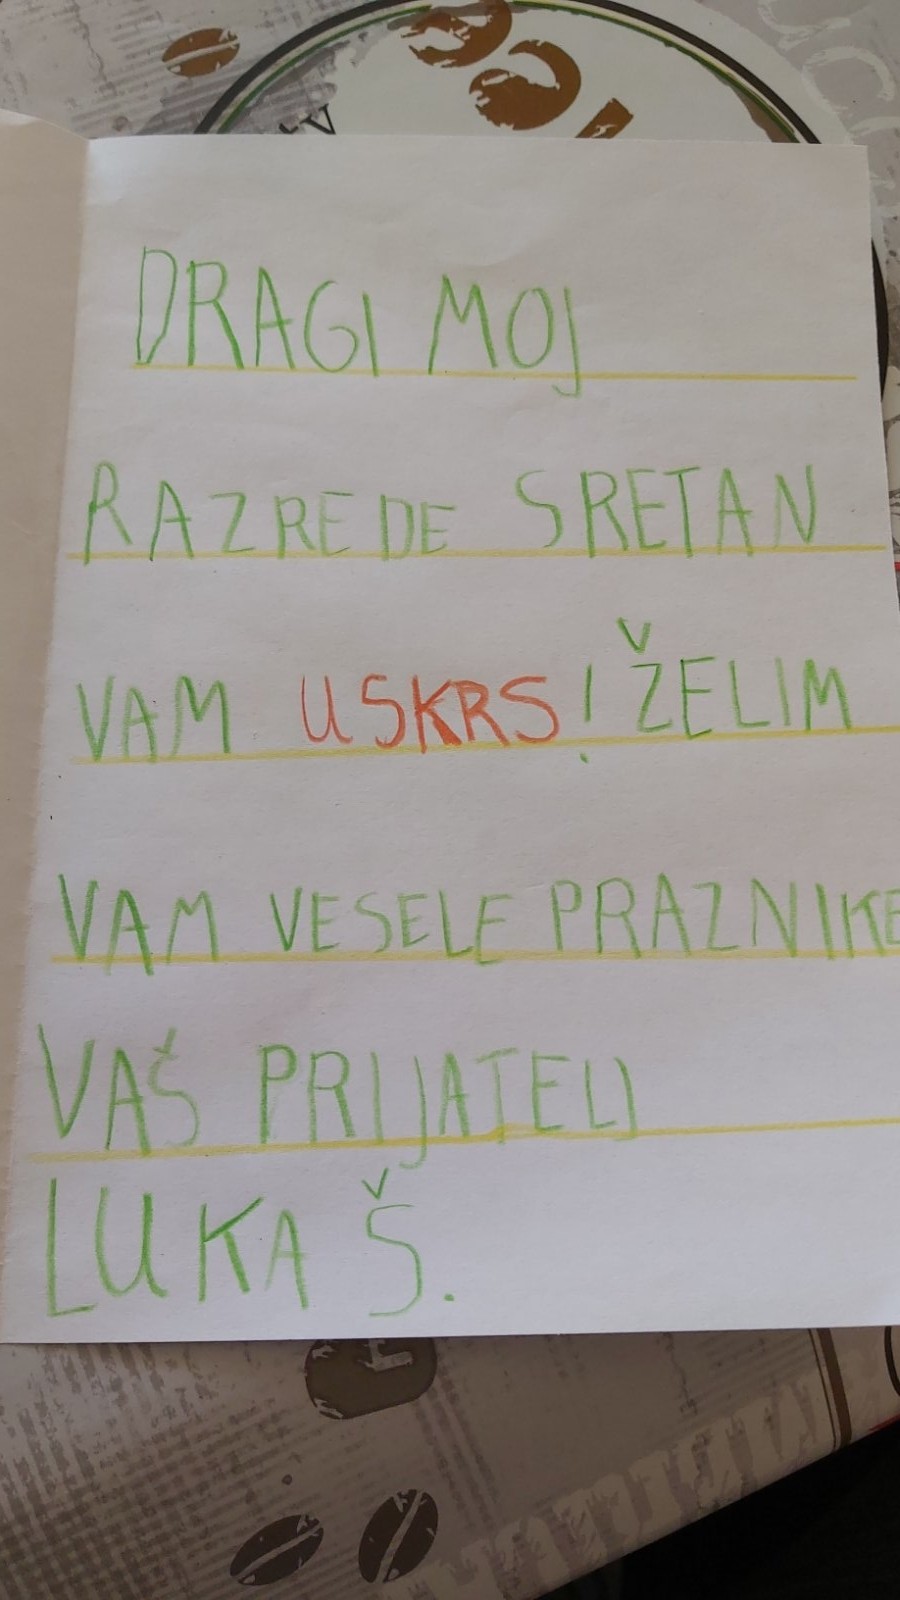 DRAGI MOJ
RAZREDE SRETAN
VAM USKRS! ŽELIM
VAM VESELE PRAZNIKE
VAŠ PRIJATELJ
LUKA Š.